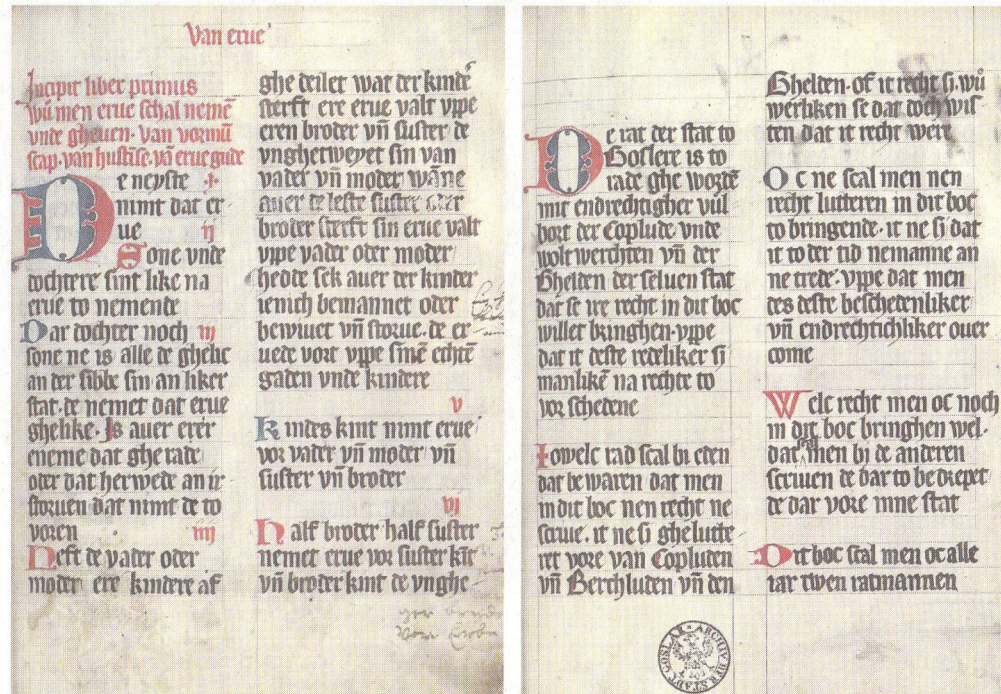 Van erue
Incipit liber primus
wū men erue schal nemē
vnde gheuen. van vormū
scap. van husuise. vā erue gude
De neyste i
nimt dat er
ue ij
Sone vnde
dochtere sint like na
erue to nemende
Dar dochter noch iij
sone ne is alle de ghene
an der sibbe sin an liker
stat. de nemet dat erue
ghelike. Is auer erer
eneme dat ghe rade
oder dat herwede an ir
storuen dat nimt de to
voren iiij
Heft de vader oder
moder ere kindere af
ghe deilet wat der kindē
sterft ere erue valt vppe
eren broder vn̄ suster de
vnghetweyet sin van
vader vn̄ moder wāne
auer de leste suster oder
broder sterft sin erue valt
vppe vader oder moder
hedde sek auer der kinder
ienich bemannet oder
bewiuet vn̄ storue. de er
uede vort vppe sinē echtē
gaden vnde kindere
v
Kindes kint nimt erue
vor vader vn̄ moder vn̄
suster vn̄ broder
vj
Half broder half suster
nemet erue vor suster kīt
vn̄ broder kint de vnghe
De rat der stat to
Goslere is to
rade ghe wordē
mit endrechtigher vul
bort der Coplude vnde
wolt werchten vn̄ der
Ghelden der seluen stat
dat se ire recht in dit boc
willet bringhen. vppe
dat it deste redeliker si
manlikē na rechte to
vor schedene
Iowelc rad scal bi eden
dat be waren dat men
in dit boc nen recht ne
scriue. it ne si ghelutte
ret vore van Copluden
vn̄ Berchluden vn̄ den
Ghelden. of it recht si. wū
werliken se dat doch wis
ten dat it recht were
Oc ne scal men nen
recht lutteren in dit boc
to bringende. it ne si dat
it to der tid nemanne an
ne trede. vppe dat men
des deste beschedenliker
vn̄ endrechtichliker ouer
come
Welc recht men oc noch
in dit boc bringhen wel.
dat men bi de anderen
scriuen de dar to bedrepet
de dar vore inne stat
Dit boc scal men oc alle
iar twen ratmannen
ARCHIV DER STADT GOSLAR